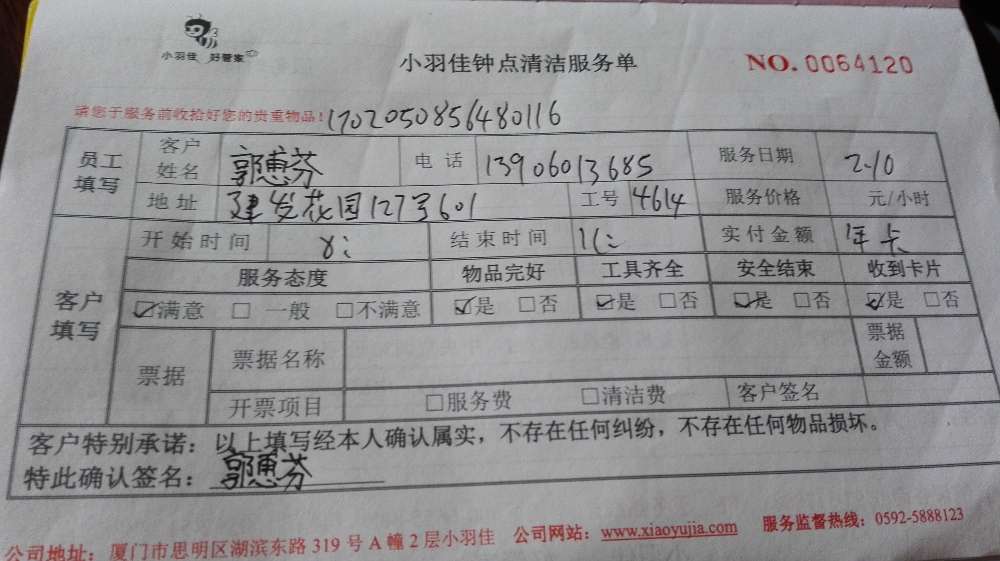 小羽佳 好管家
小羽佳钟点清洁服务单
NO. 0064120
请您于服务前收拾好您的贵重物品! 1702050856480116
员工填写 客户姓名 郭惠芬 电话 13906013685 服务日期 2-10
地址 建发花园127号601 工号 4614 服务价格 元/小时
客户填写 开始时间 8: 结束时间 11: 实付金额 年卡
服务态度 物品完好 工具齐全 安全结束 收到卡片
☑满意 □一般 □不满意 ☑是 □否 ☑是 □否 ☑是 □否 ☑是 □否
票据 票据名称 票据金额
开票项目 □服务费 □清洁费 客户签名
客户特别承诺：以上填写经本人确认属实，不存在任何纠纷，不存在任何物品损坏。
特此确认签名：郭惠芬
公司地址：厦门市思明区湖滨东路 319 号 A 幢 2 层小羽佳 公司网站：www.xiaoyujia.com 服务监督热线：0592-5888123